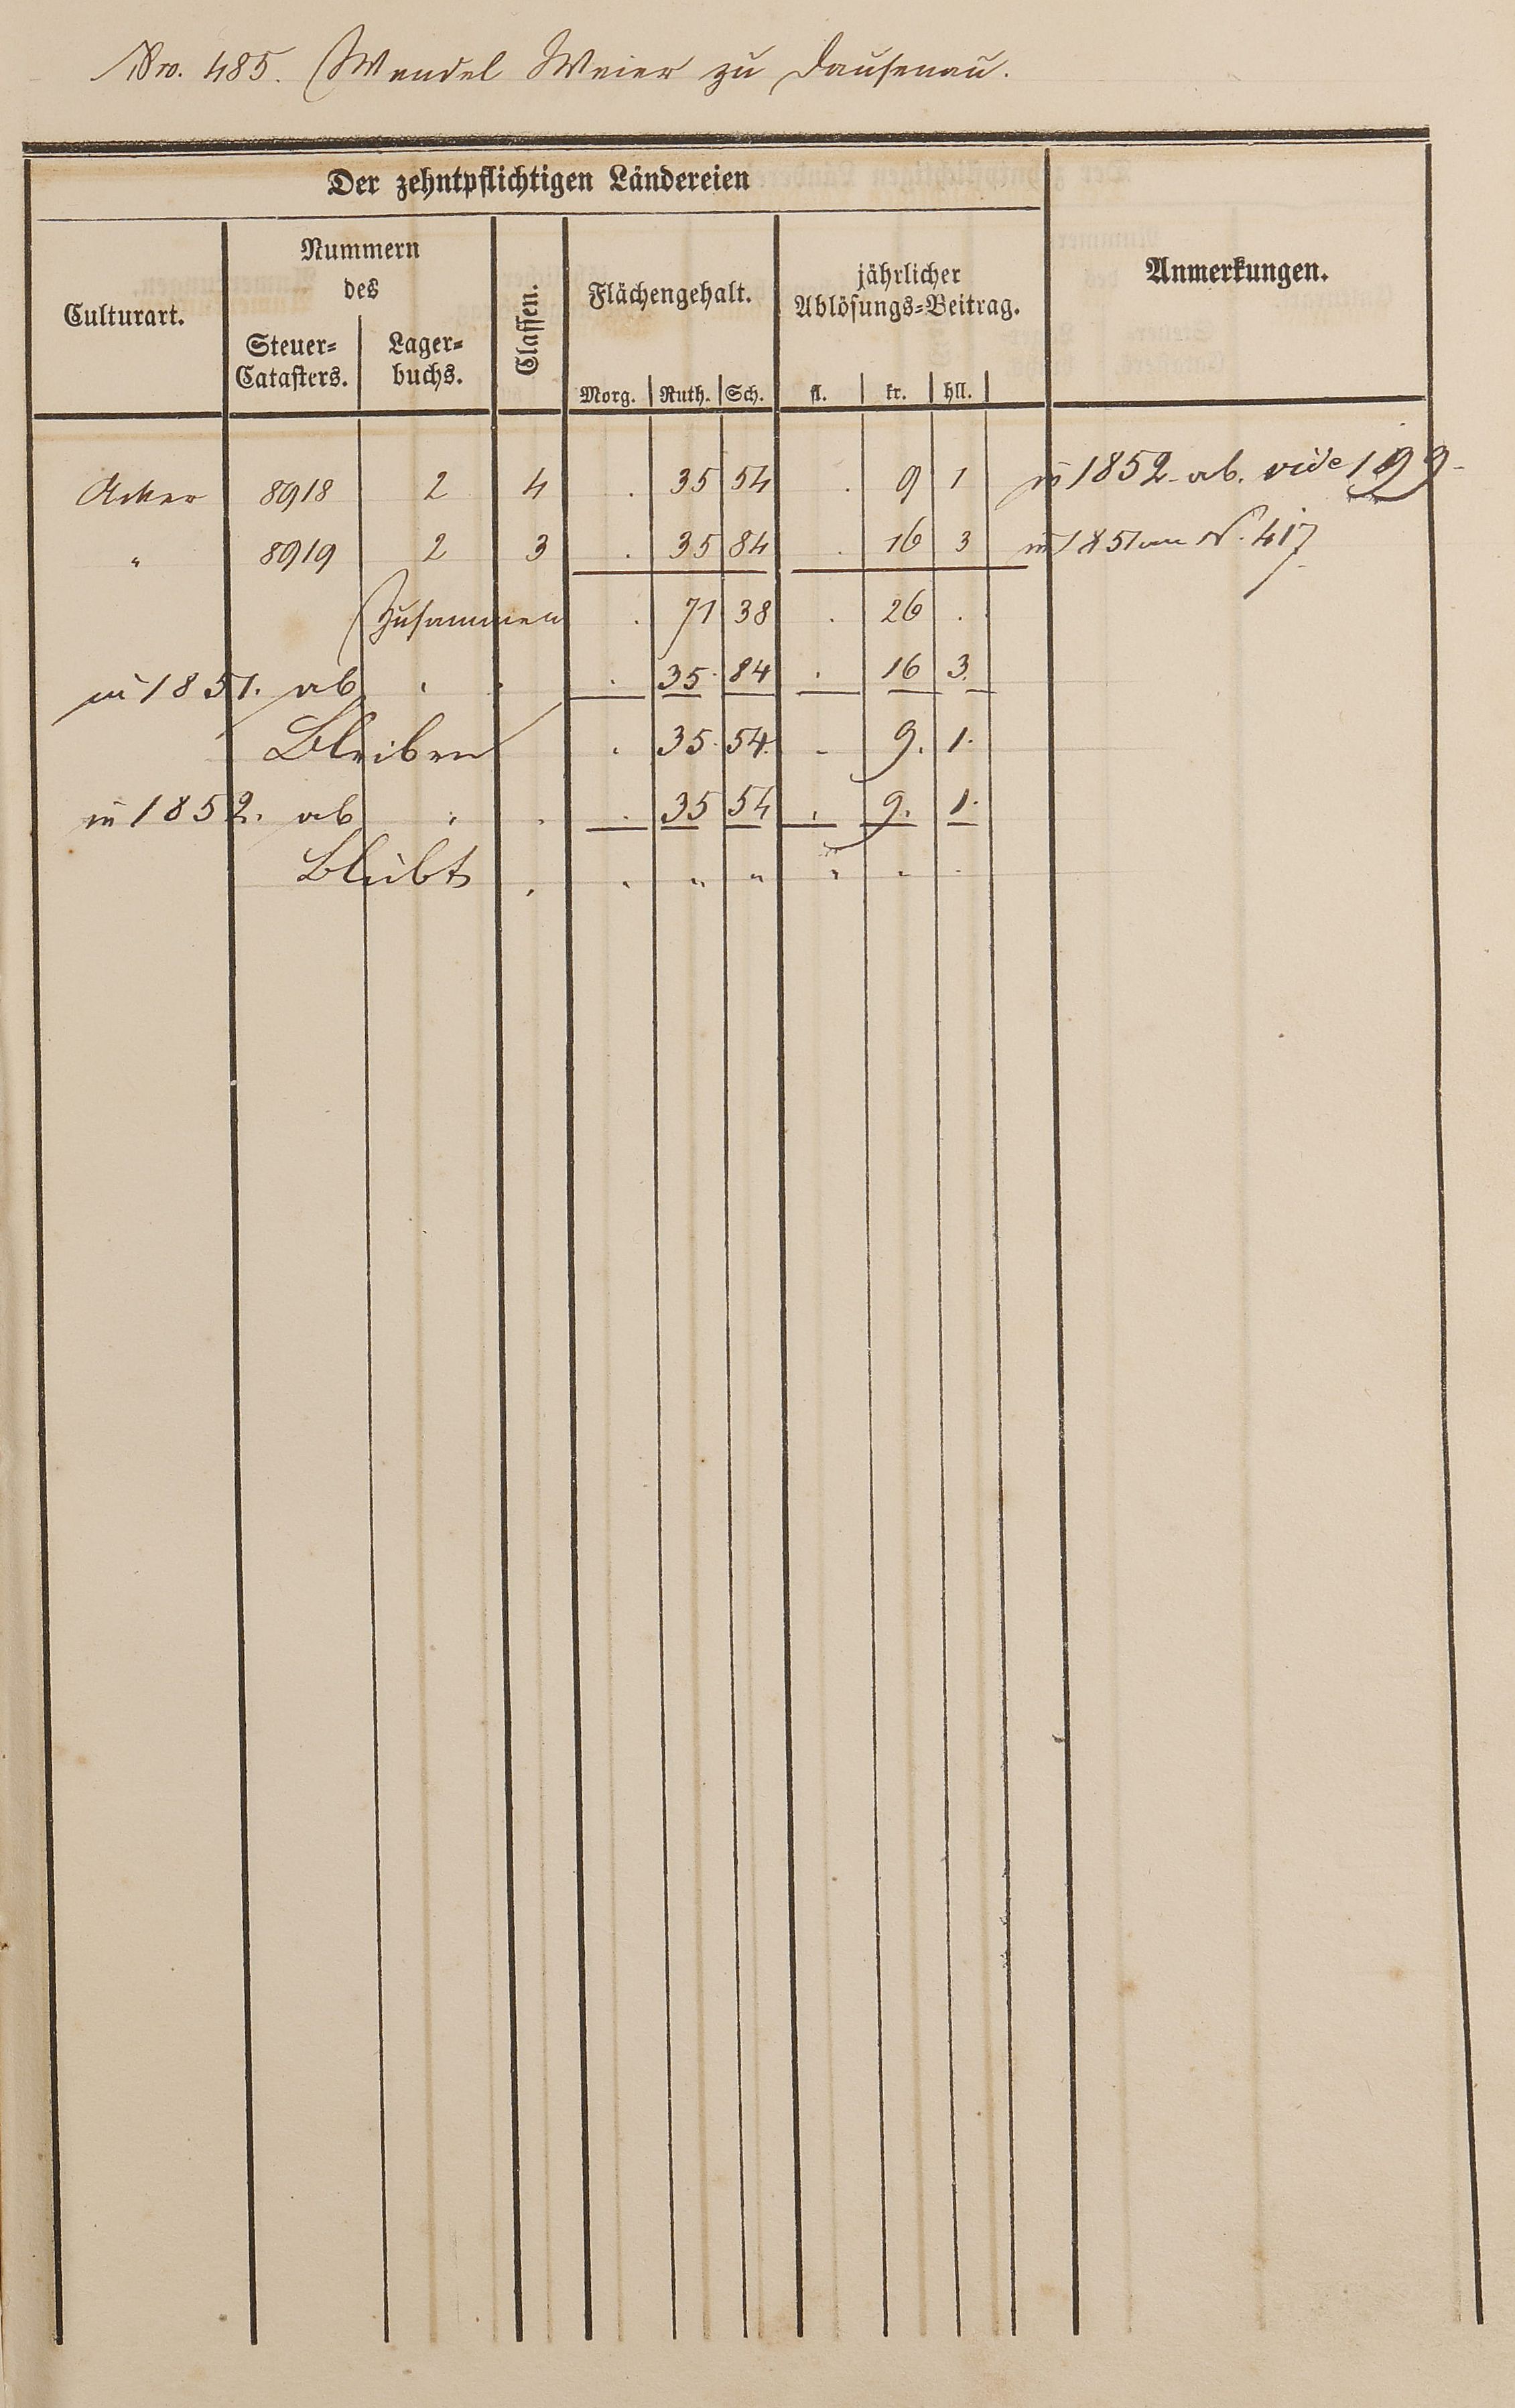 Nro. 485. Wendel Weier zu Dausenau.
Der zehntpflichtigen Ländereien
Culturart.
Nummern
des
Steuer=
Catasters.
Lager=
buchs.
Classen.
Flächengehalt.
Morg. Ruth. Sch.
jährlicher
Ablösungs=Beitrag.
fl. kr. hll.
Anmerkungen.
Acker 8918 2 4 . 35 54 . 9 1 in 1852 ab. vide 199
" 8919 2 3 . 35 84 . 16 3 in 1851 an N. 417
Zusammen . 71 38 . 26 .
in 1851. ab . . . 35. 84 . 16 3.
Bleiben . 35. 54. . 9. 1.
in 1852. ab . . . 35 54 . 9. 1.
Bleibt . . " " " " .